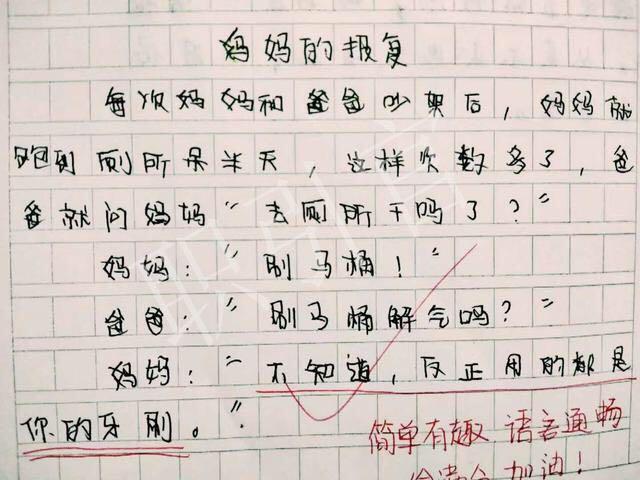 妈妈的报复
每次妈妈和爸爸吵架后，妈妈就
跑到厕所呆半天，这样次数多了，爸
爸就问妈妈“去厕所干吗了？”
妈妈：“刷马桶！”
爸爸：“刷马桶解气吗？”
妈妈：“不知道，反正用的都是
你的牙刷。”
简单有趣 语言通畅
加油！